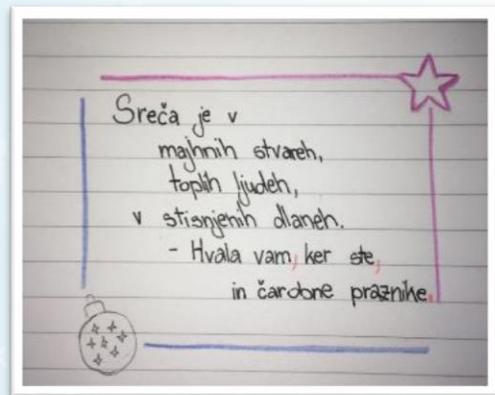 Sreča je v
majhnih stvareh,
toplih ljudeh,
v stisnjenih dlaneh.
- Hvala vam, ker ste,
in čarobne praznike.